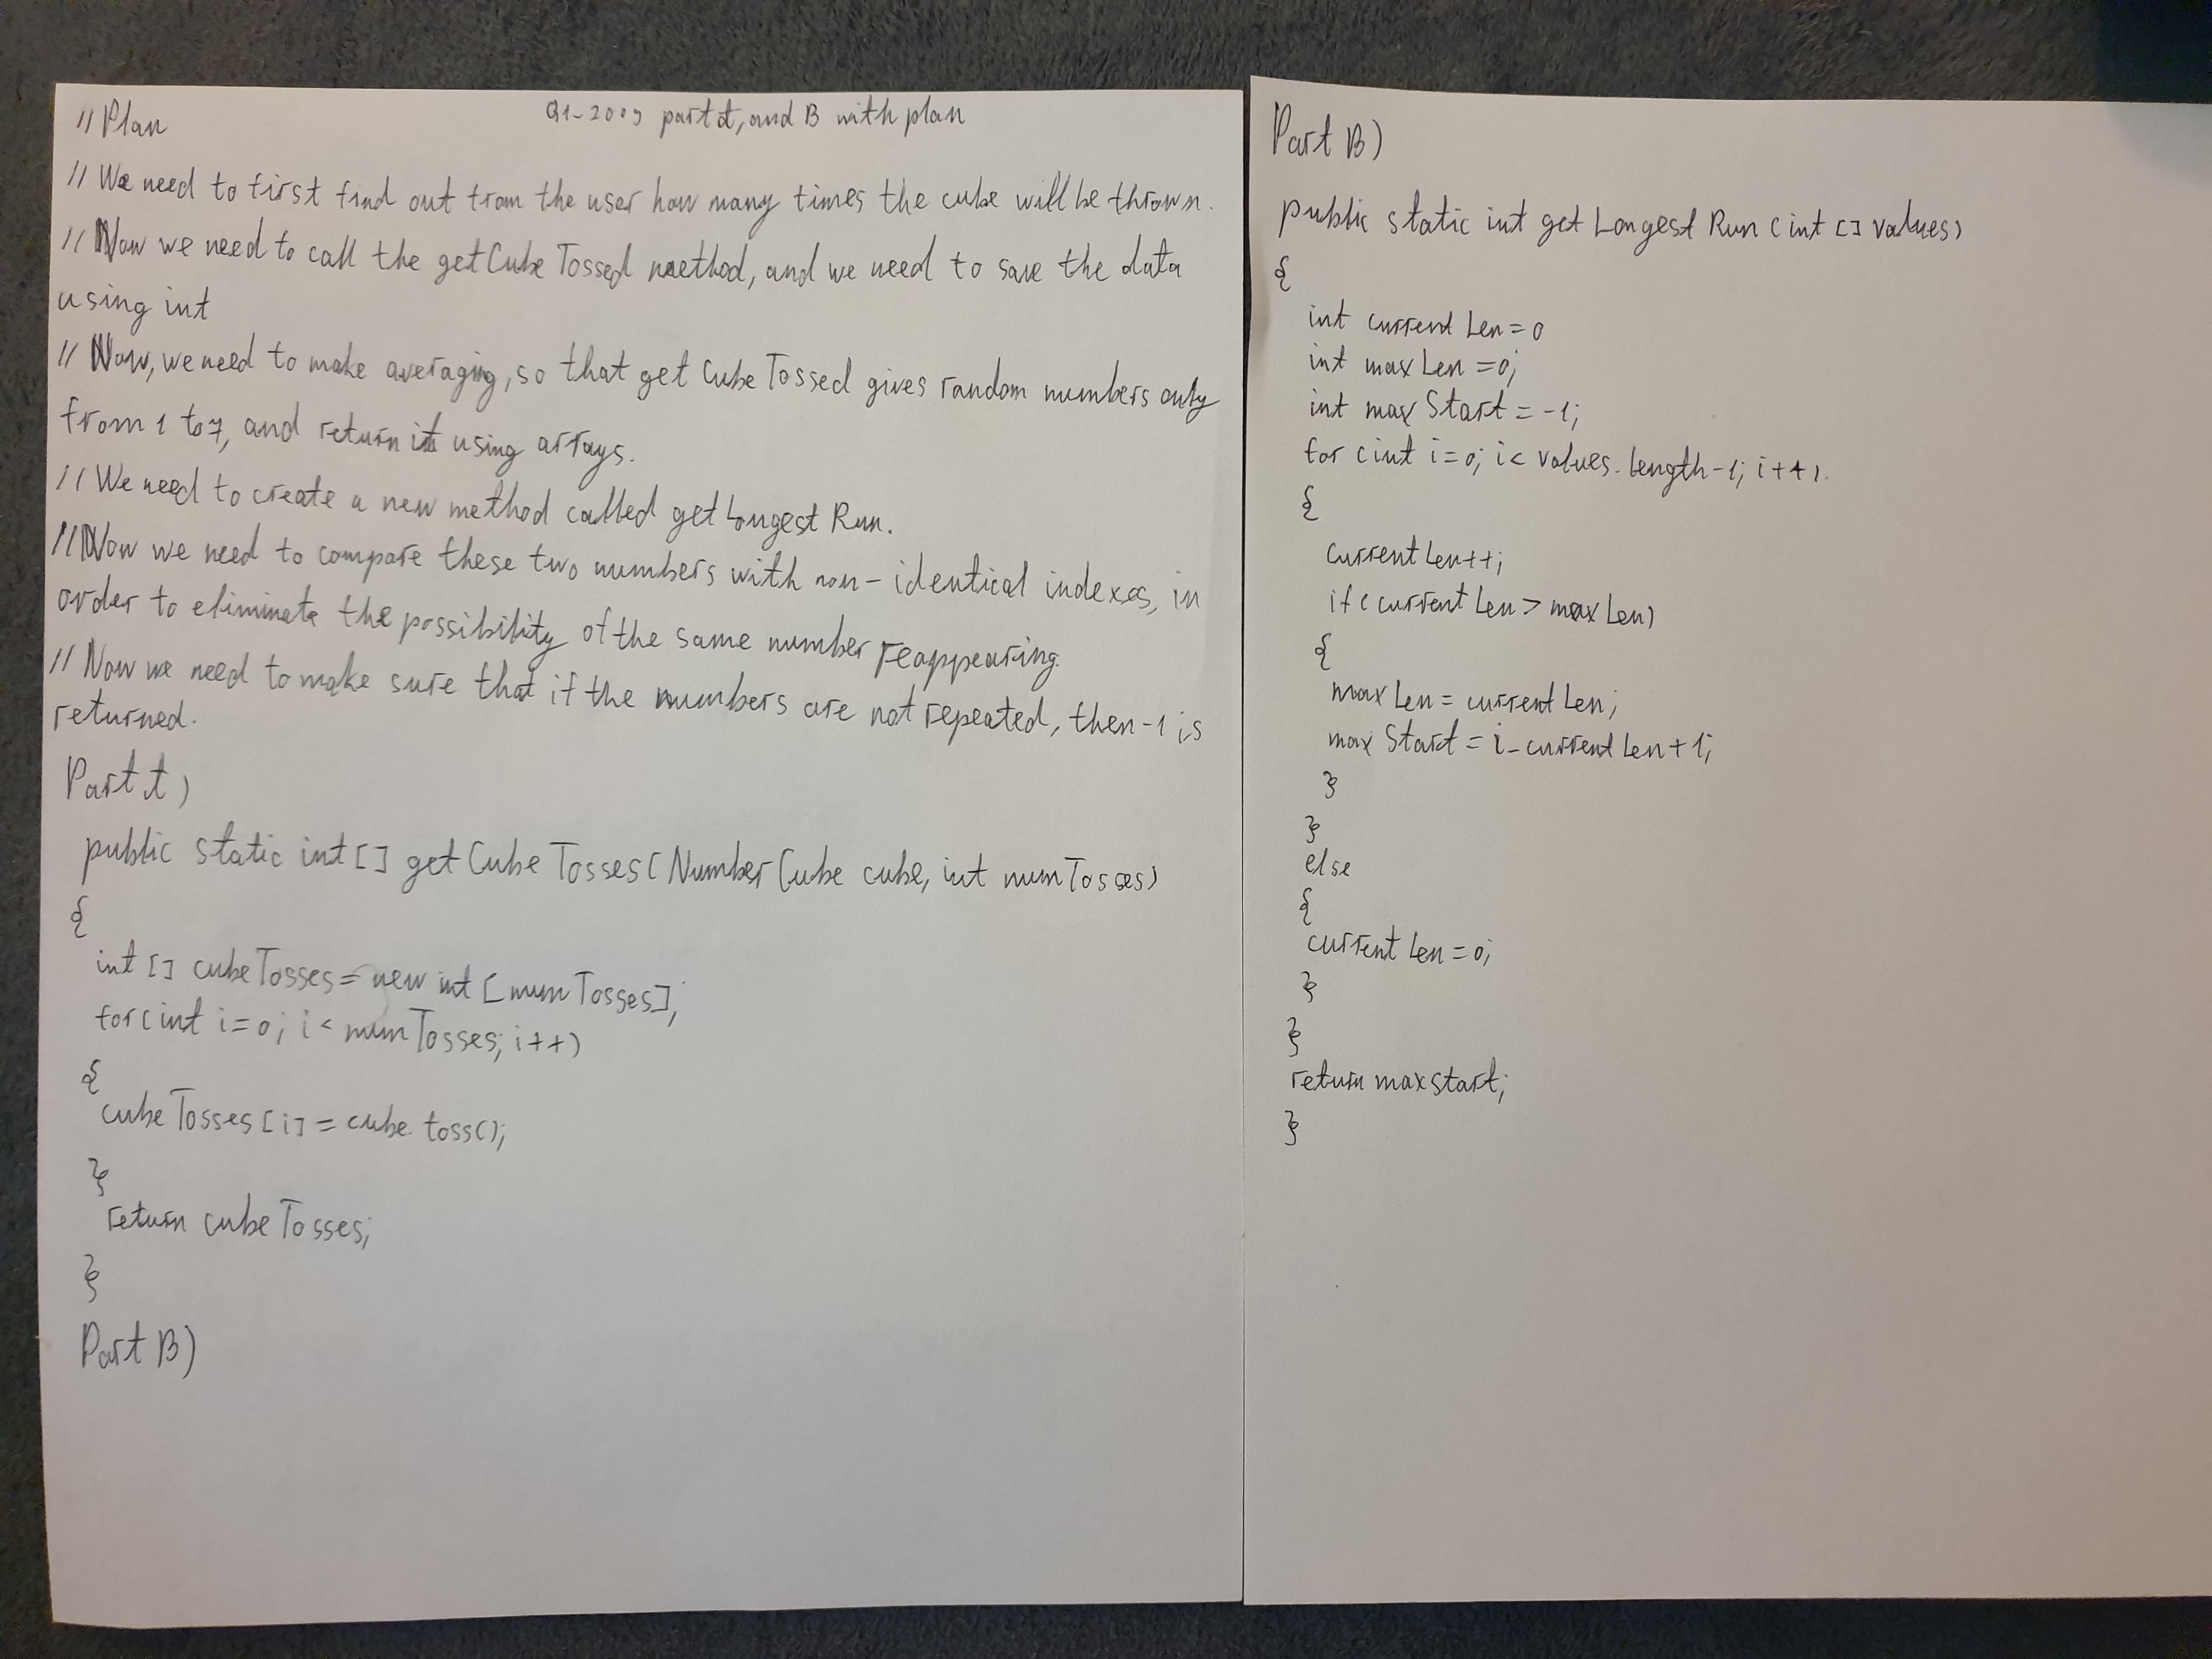 Q1-2009 part A, and B with plan
// Plan
// We need to first find out from the user how many times the cube will be thrown.
// Now we need to call the getCubeTossed method, and we need to save the data
using int
// Now, we need to make averaging, so that getCubeTossed gives random numbers only
from 1 to 7, and return it using arrays.
// We need to create a new method called getLongestRun.
// Now we need to compare these two numbers with non-identical indexes, in
order to eliminate the possibility of the same number reappearing.
// Now we need to make sure that if the numbers are not repeated, then -1 is
returned.
Part A)
public static int[] getCubeTosses(NumberCube cube, int numTosses)
{
int[] cubeTosses = new int[numTosses];
for(int i=0; i < numTosses; i++)
{
cubeTosses[i] = cube.toss();
}
return cubeTosses;
}
Part B)
Part B)
public static int getLongestRun(int[] values)
{
int currentLen = 0
int maxLen = 0;
int maxStart = -1;
for(int i=0; i < values.length-1; i++)
{
currentLen++;
if(currentLen > maxLen)
{
maxLen = currentLen;
maxStart = i - currentLen + 1;
}
}
else
{
currentLen = 0;
}
}
return maxStart;
}